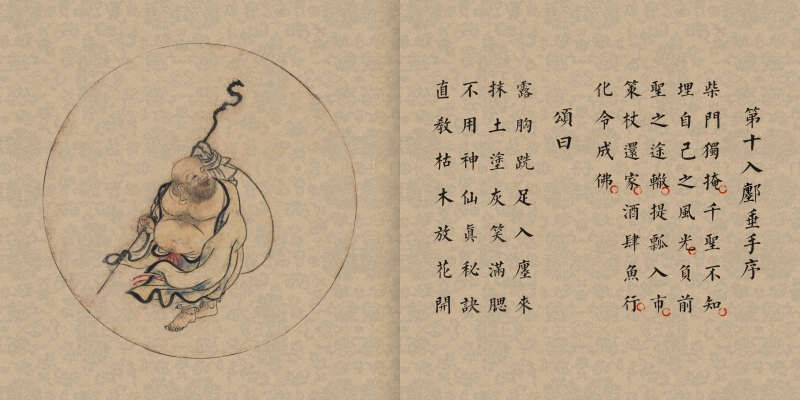 第十入鄽垂手序
柴門獨掩千聖不知
埋自己之風光負前
聖之途轍提瓢入市
策杖還家酒肆魚行
化令成佛
頌曰
露胸跣足入廛來
抹土塗灰笑滿腮
不用神仙眞秘訣
直敎枯木放花開